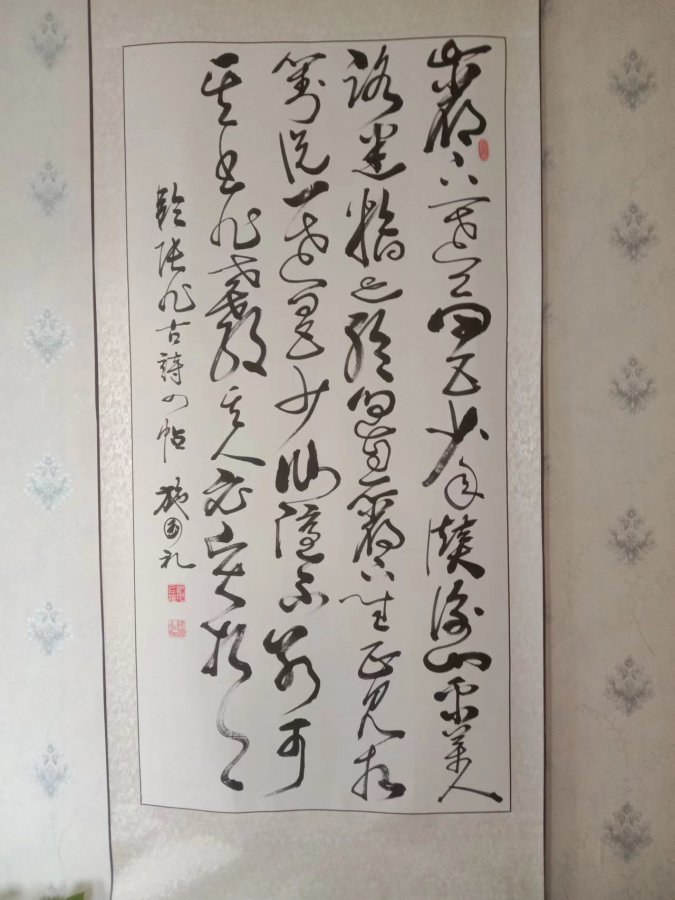 巖下一老翁四五少年讚衡山采藥人
路迷糧亦絕過息巖下坐正見相
對説一老四五少仙隱不別可
其書非世教其人必賢哲
臨張旭古詩四帖 國礼